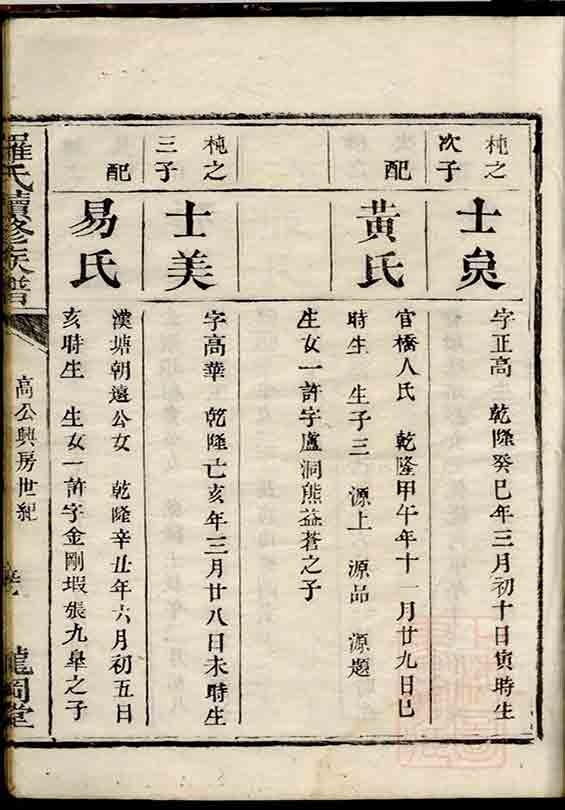 柂之
次子
士㒶
字正高 乾隆癸巳年三月初十日寅時生
配
黃氏
官橋人氏 乾隆甲午年十一月廿九日巳
時生 生子三 源上 源品 源題
生女一許字盧洞熊益蒼之子
柂之
三子
士美
字高華 乾隆亡亥年三月廿八日未時生
配
易氏
漢塘朝遠公女 乾隆辛丑年六月初五日
亥時生 生女一許字金剛塅張九皋之子
羅氏續修族譜
高公興房世紀
龍岡堂